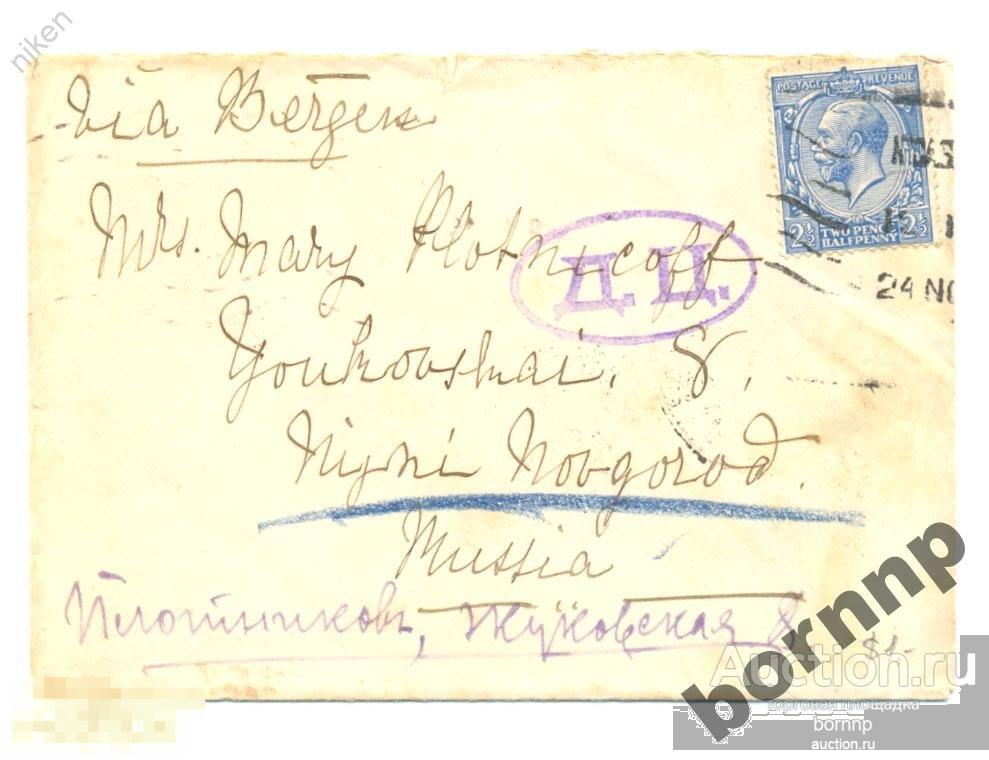 niken
Via Bergen
POSTAGE REVENUE
2½ TWO PENCE HALFPENNY 2½
24 NO
Mrs. Mary Plotnicoff
Д.Ц.
Youkovskai. 8.
Nijni Novgorod.
Russia
Плотниковъ, Жуковская 8
$1-
bornnp
Auction.ru
торговая площадка
bornnp
auction.ru